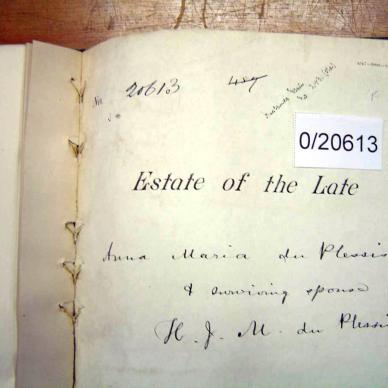 No 20613 487
0/20613
Estate of the Late
Anna Maria du Plessis
& surviving spouse
H. J. M. du Plessis